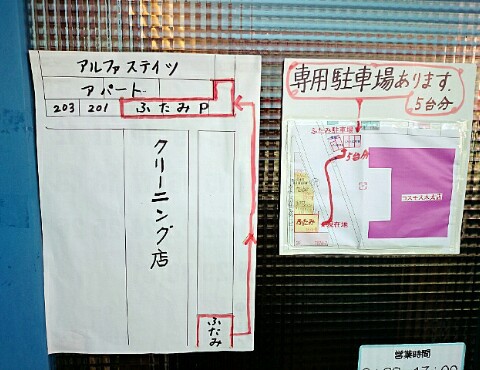 アルファステイツ
アパート
203 201 ふたみ P
クリーニング店
ふたみ
専用駐車場あります.
5台分
ふたみ駐車場
5台分
ふたみ
現在地
営業時間